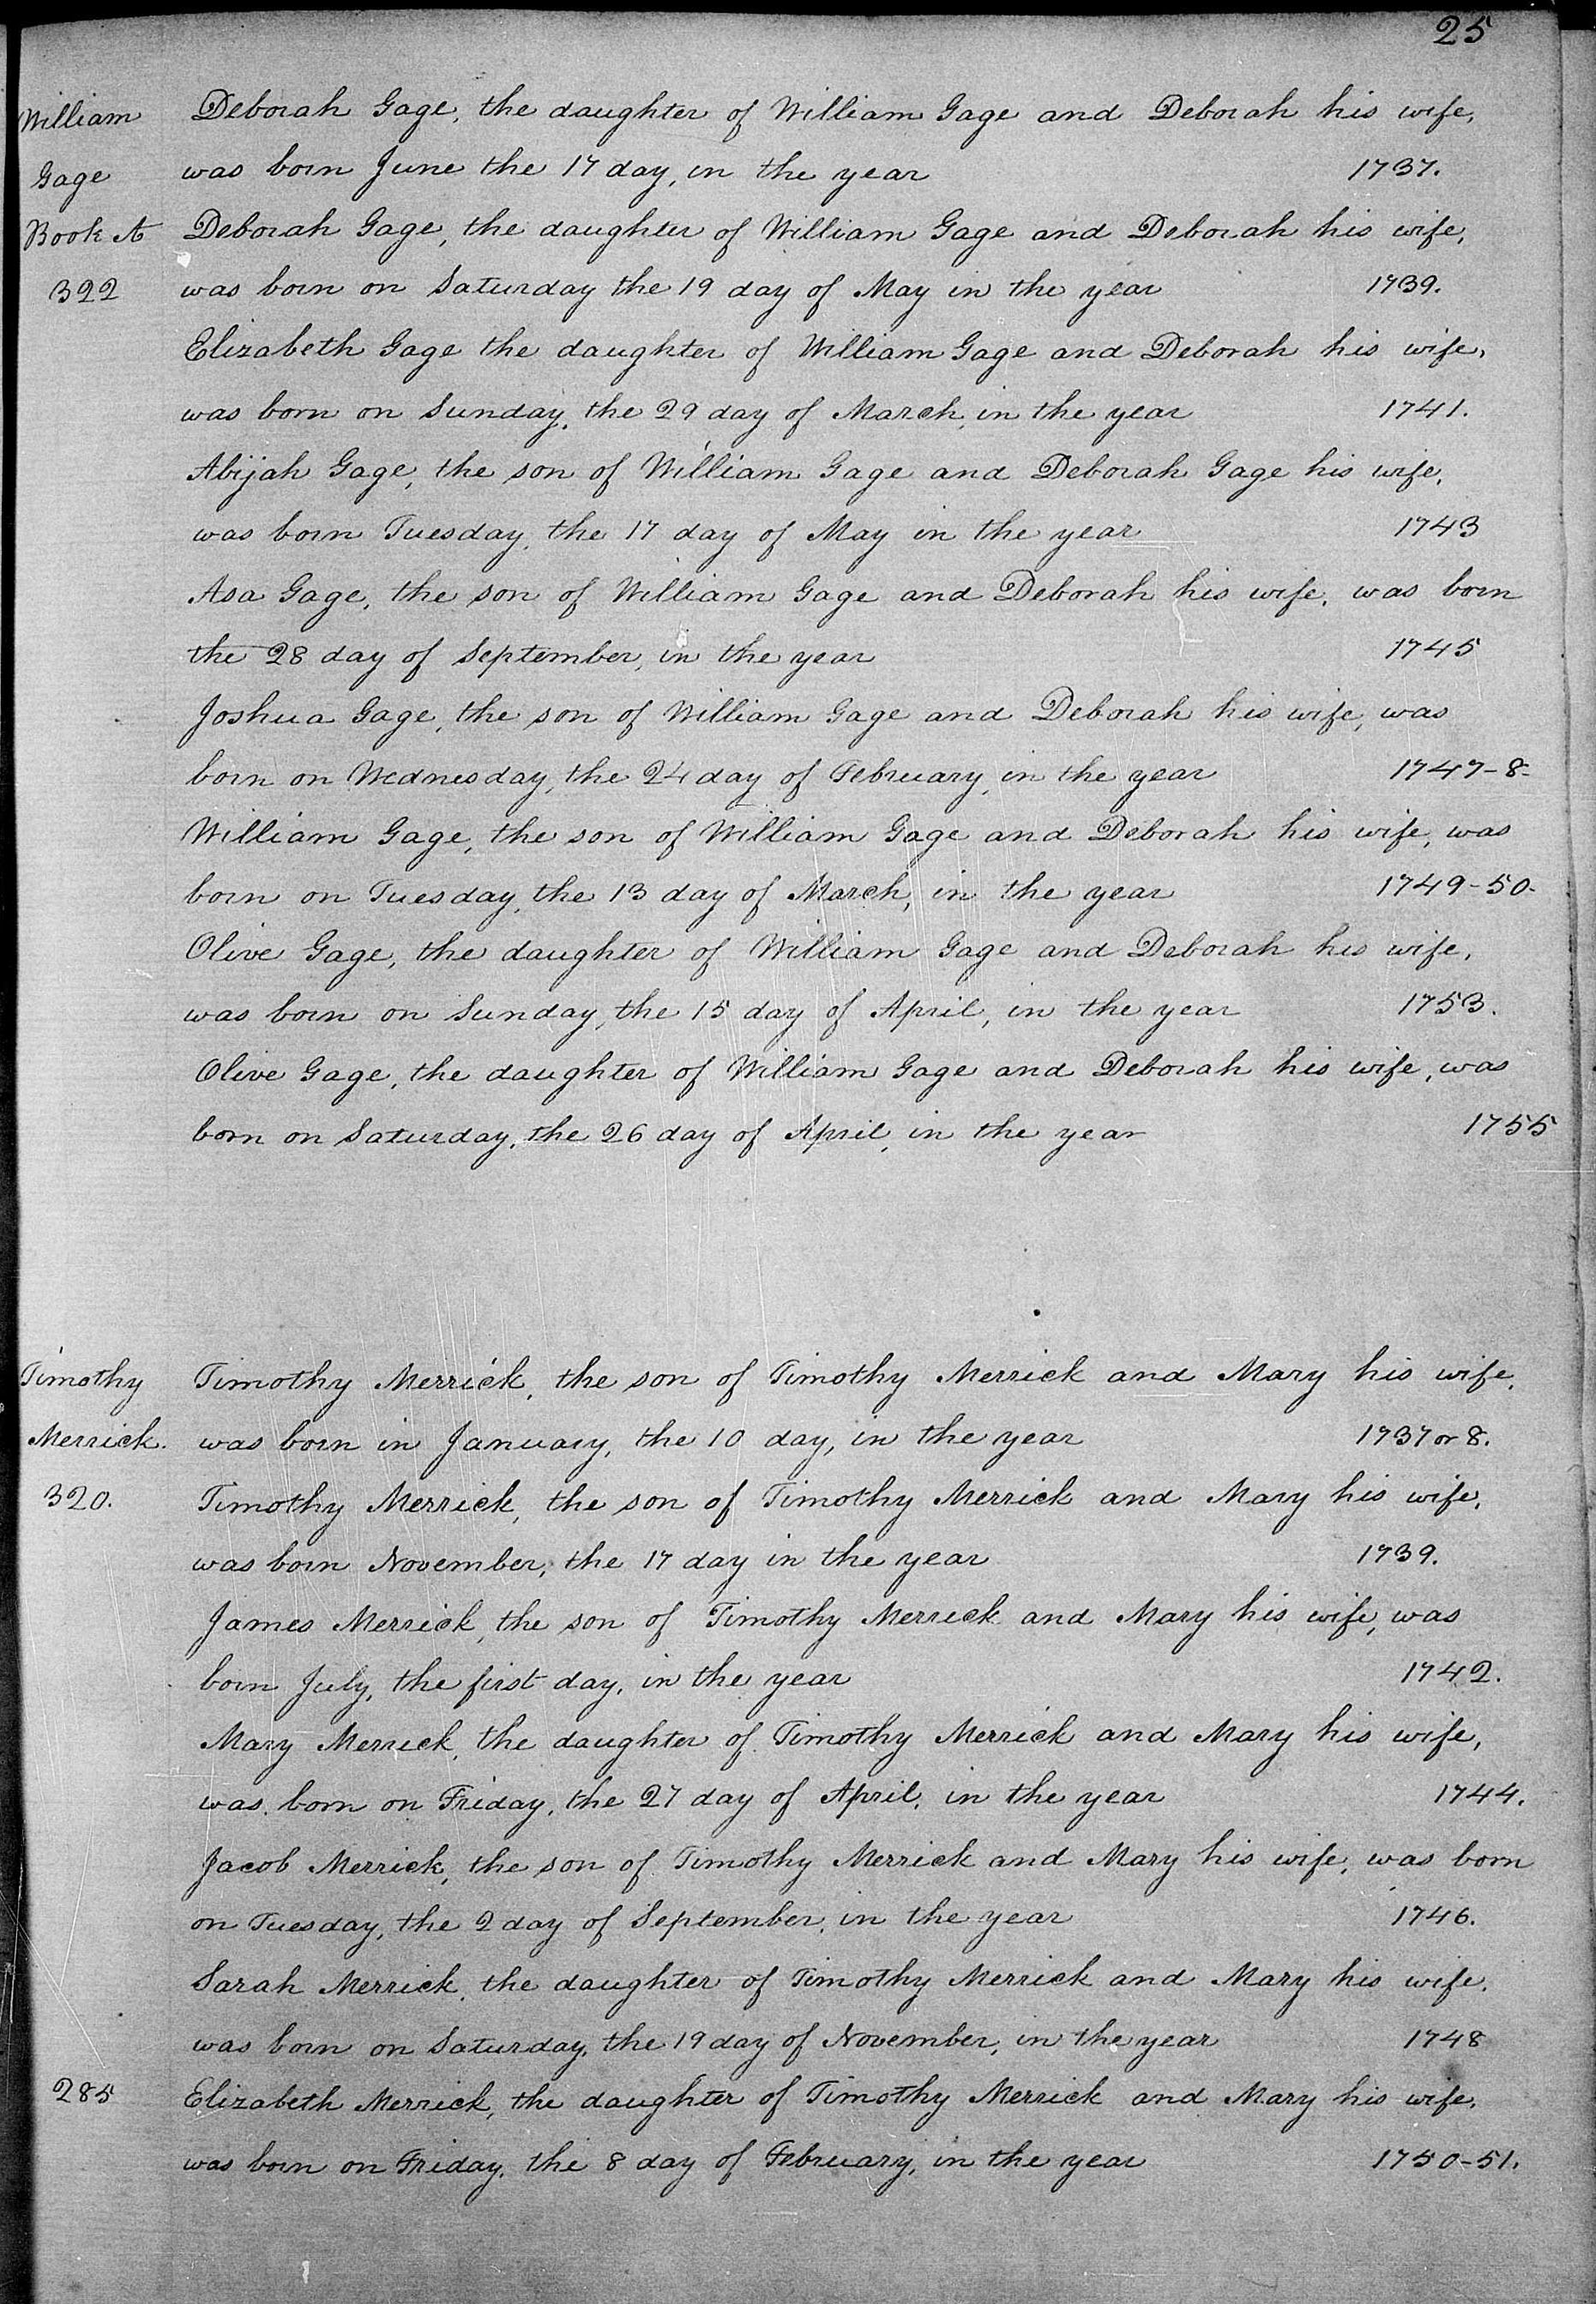 25
William Deborah Gage, the daughter of William Gage and Deborah his wife,
Gage was born June the 17 day, in the year 1737.
Book A Deborah Gage, the daughter of William Gage and Deborah his wife,
322 was born on Saturday the 19 day of May in the year 1739.
Elizabeth Gage the daughter of William Gage and Deborah his wife,
was born on Sunday, the 29 day of March, in the year 1741.
Abijah Gage, the son of William Gage and Deborah Gage his wife,
was born Tuesday, the 17 day of May in the year 1743
Asa Gage, the son of William Gage and Deborah his wife, was born
the 28 day of September, in the year 1745
Joshua Gage, the son of William Gage and Deborah his wife, was
born on Wednesday, the 24 day of February, in the year 1747-8-
William Gage, the son of William Gage and Deborah his wife, was
born on Tuesday, the 13 day of March, in the year 1749-50-
Olive Gage, the daughter of William Gage and Deborah his wife,
was born on Sunday, the 15 day of April, in the year 1753.
Olive Gage, the daughter of William Gage and Deborah his wife, was
born on Saturday, the 26 day of April, in the year 1755
Timothy Timothy Merrick, the son of Timothy Merrick and Mary his wife,
Merrick. was born in January, the 10 day, in the year 1737 or 8.
320. Timothy Merrick, the son of Timothy Merrick and Mary his wife,
was born November, the 17 day in the year 1739.
James Merrick, the son of Timothy Merrick and Mary his wife, was
born July, the first day, in the year 1742.
Mary Merrick, the daughter of Timothy Merrick and Mary his wife,
was born on Friday, the 27 day of April, in the year 1744.
Jacob Merrick, the son of Timothy Merrick and Mary his wife, was born
on Tuesday, the 2 day of September, in the year 1746.
Sarah Merrick, the daughter of Timothy Merrick and Mary his wife,
was born on Saturday, the 19 day of November, in the year 1748
285 Elizabeth Merrick, the daughter of Timothy Merrick and Mary his wife,
was born on Friday, the 8 day of February, in the year 1750-51.